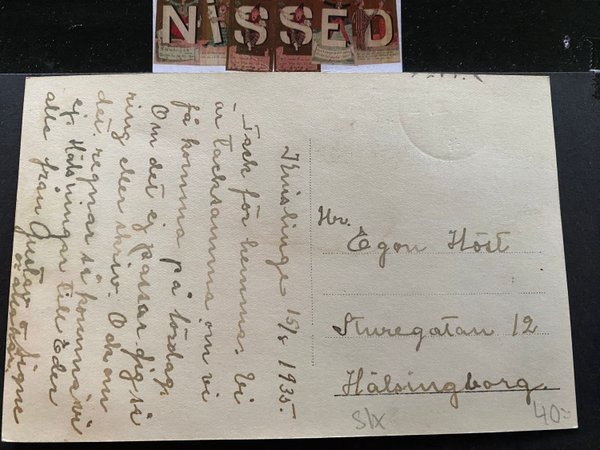 NISSED
Knislinge 15/8 1935.
- Tack för hemma. Vi
är tacksamma om vi
få komma på lördag.
Om det ej passar dig så
ring eller skriv. Och om
det regnar så komma vi
ej. Hälsningar till Eder
alla från Gustav o Signe
Hr. Egon Höst
Sturegatan 12
Hälsingborg
Slx
40:-